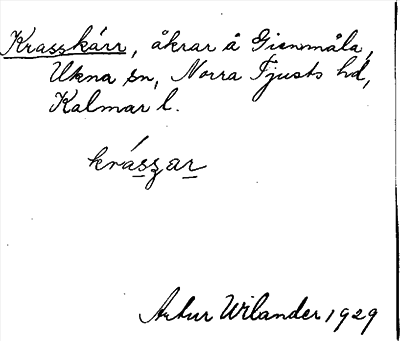 Krasskärr, åkrar å Gismmåla,
Ukna sn, Norra Tjusts hd,
Kalmar l.
krászar
Artur Wilander 1929